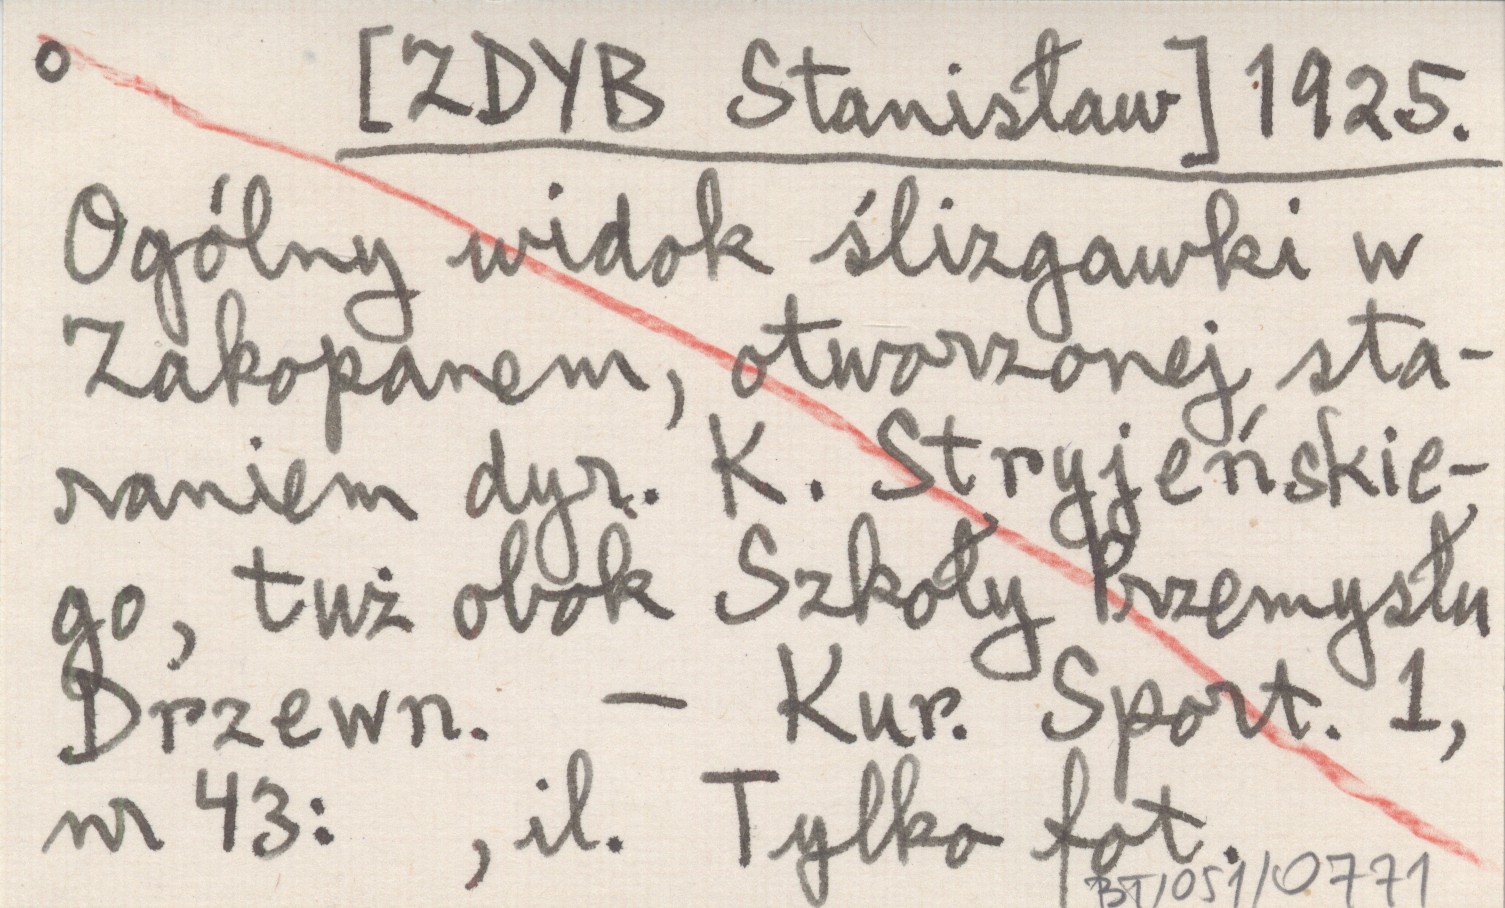 o [ZDYB Stanisław] 1925.
Ogólny widok ślizgawki w
Zakopanem, otworzonej sta-
raniem dyr. K. Stryjeńskie-
go, tuż obok Szkoły Przemysłu
Drzewn. — Kur. Sport. 1,
nr 43: , il. Tylko fot.
BT/051/0771